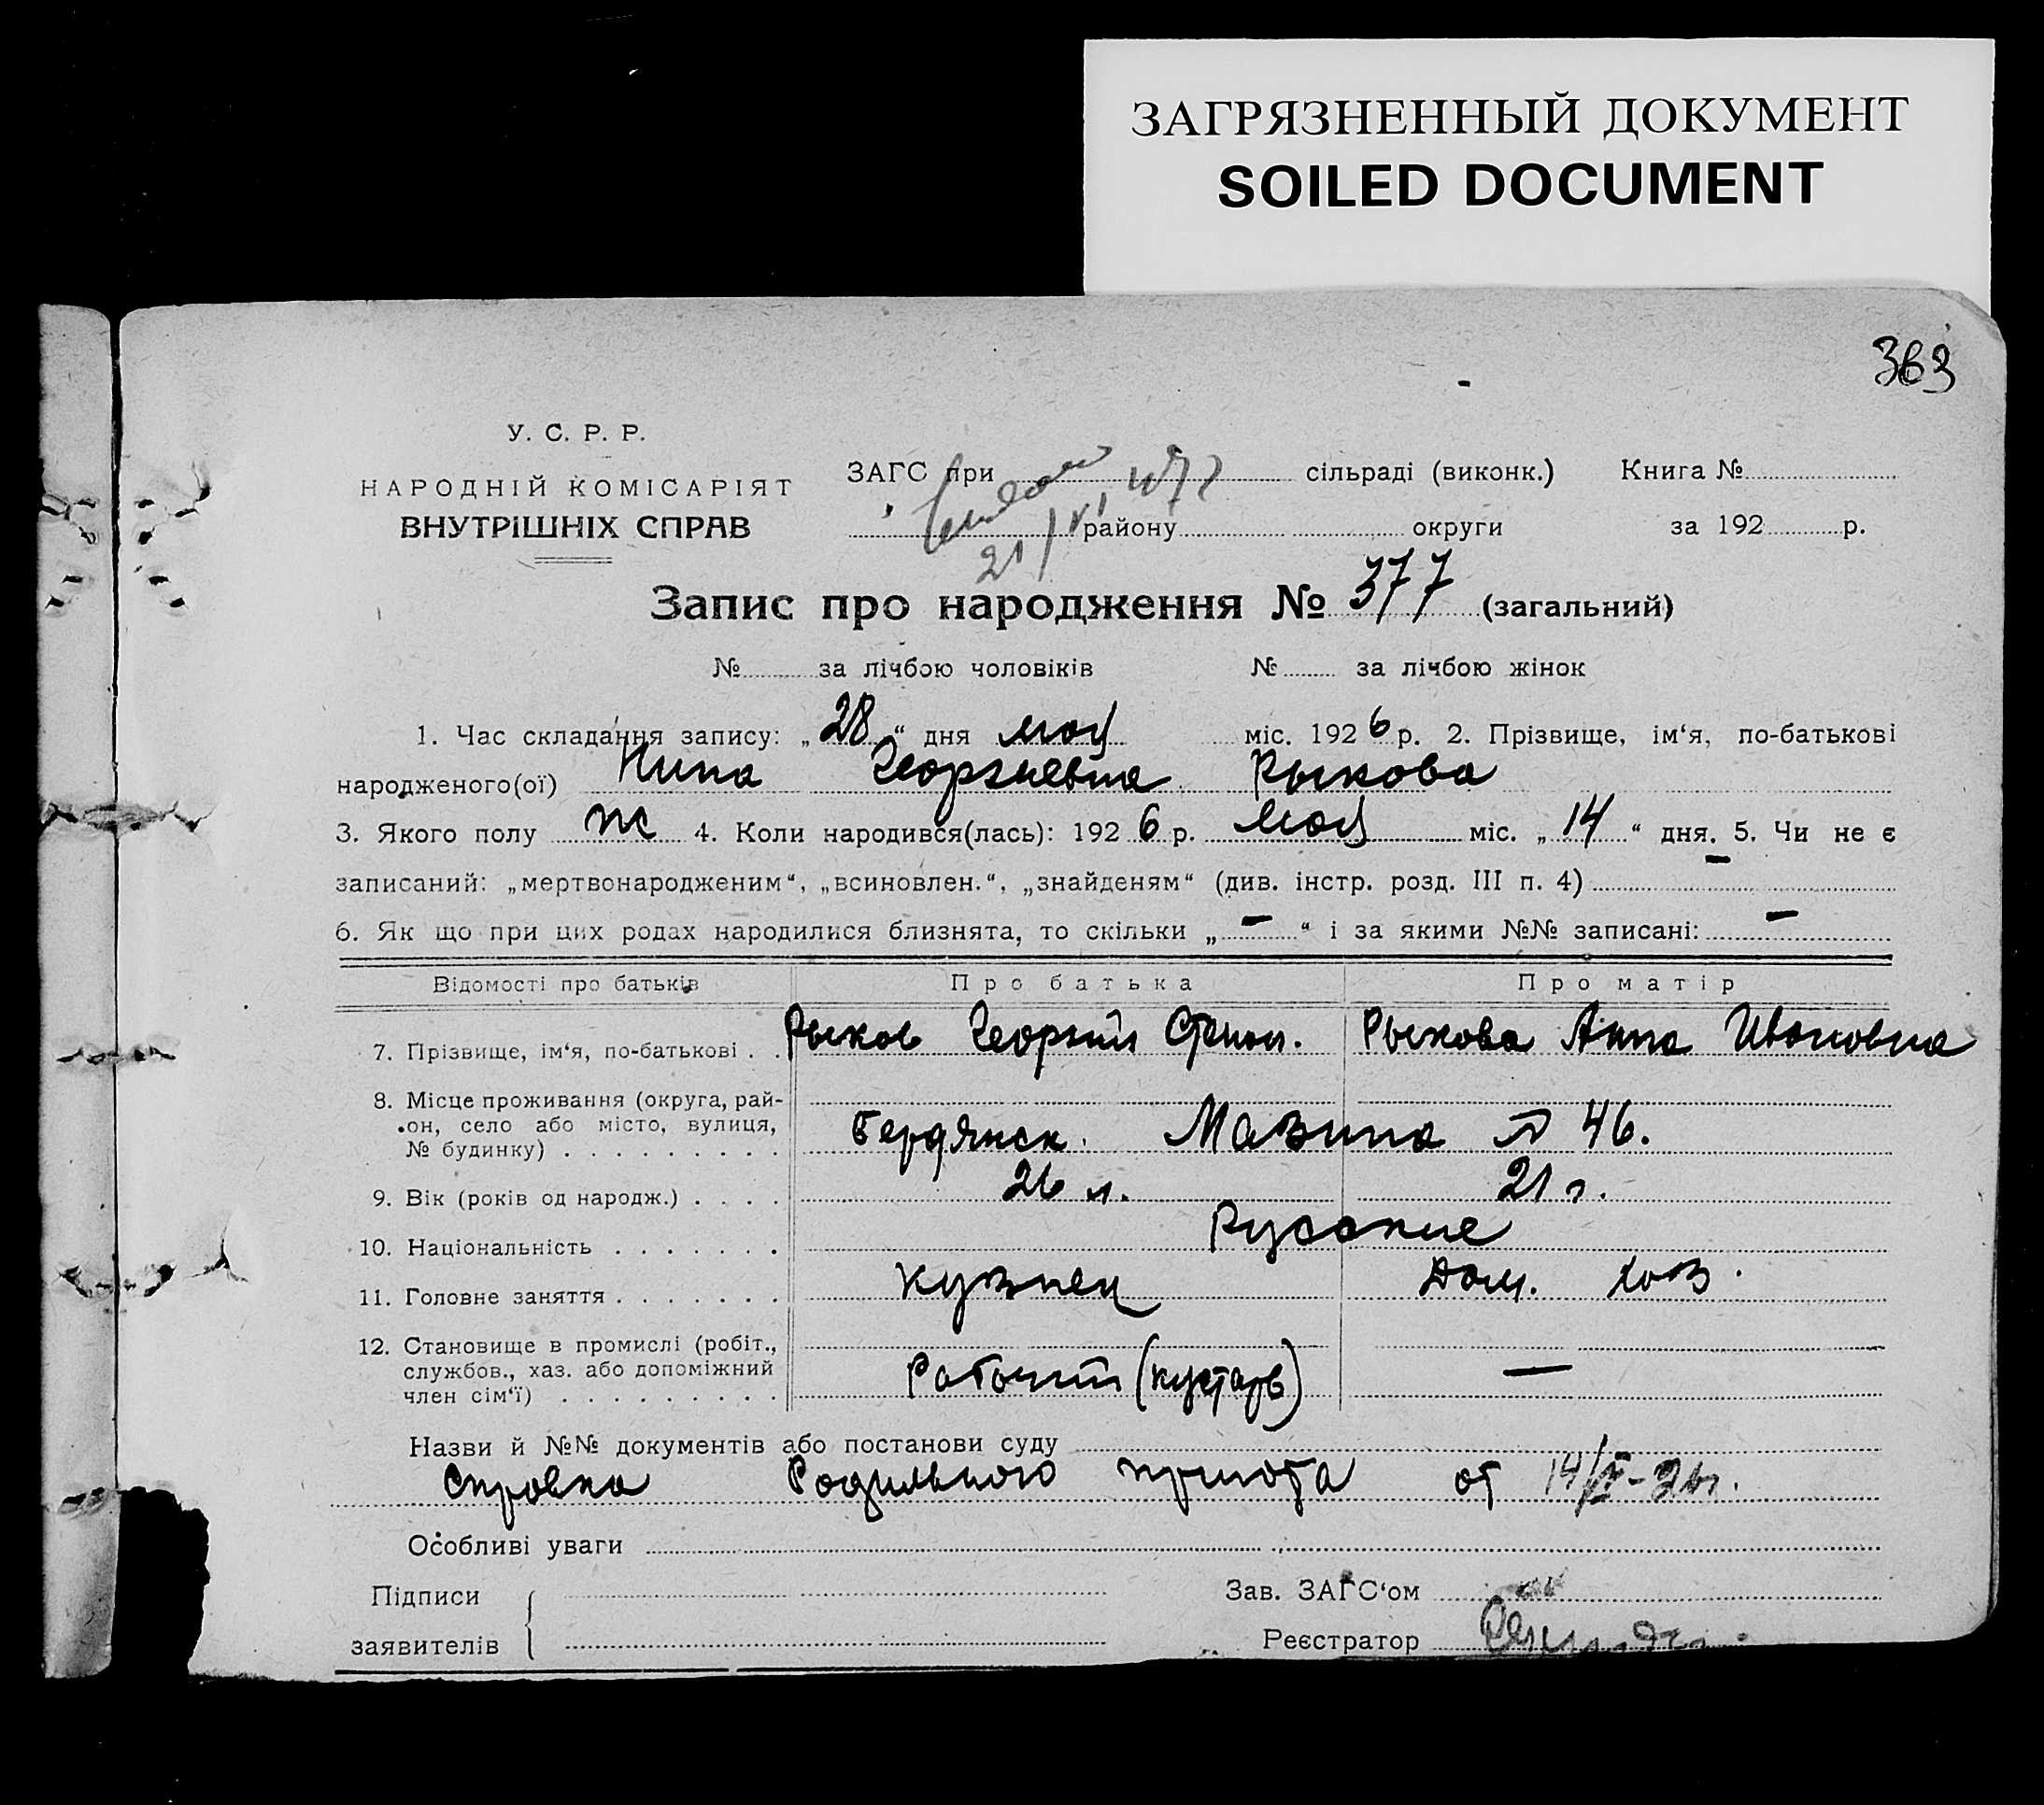 ЗАГРЯЗНЕННЫЙ ДОКУМЕНТ
SOILED DOCUMENT
363
У. С. Р. Р.
НАРОДНІЙ КОМІСАРІЯТ
ВНУТРІШНІХ СПРАВ
ЗАГС при сільраді (виконк.) Книга №
району округи за 192 р.
21/VI
Запис про народження № 377 (загальний)
№ за лічбою чоловіків № за лічбою жінок
1. Час складання запису: „28“ дня мая міс. 1926 р. 2. Прізвище, ім‘я, по-батькові
народженого(ої) Нина Георгиевна Рыкова
3. Якого полу ж 4. Коли народився(лась): 1926 р. мая міс. „14“ дня. 5. Чи не є
записаний: „мертвонародженим“, „всиновлен.“, „знайденям“ (див. інстр. розд. III п. 4) —
6. Як що при цих родах народилися близнята, то скільки „—“ і за якими №№ записані: —
Відомості про батьків Про батька Про матір
7. Прізвище, ім‘я, по-батькові . . Рыков Георгий Степан. Рыкова Анна Ивановна
8. Місце проживання (округа, рай-
он, село або місто, вулиця,
№ будинку) . . . . . . . . . Бердянск. Мазина № 46.
9. Вік (років од народж.) . . . . 26 л. 21 г.
10. Національність . . . . . . . Русские
11. Головне заняття . . . . . . . кузнец Дом. хоз.
12. Становище в промислі (робіт.,
службов., хаз. або допоміжний
член сім‘ї) . . . . . . . . . Рабочий (кустарь) —
Назви й №№ документів або постанови суду
Справка Родильного приюта от 14/V-26г.
Особливі уваги
Підписи
заявителів
Зав. ЗАГС‘ом
Реєстратор